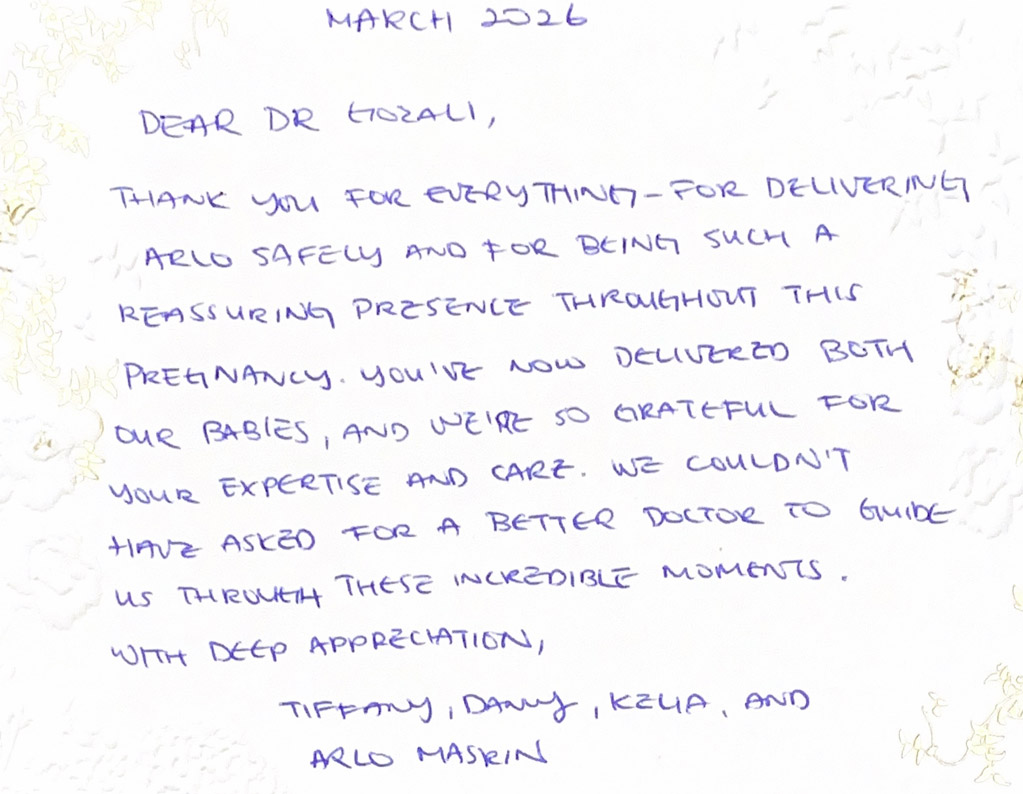 MARCH 2026
DEAR DR GOZALI,
THANK YOU FOR EVERYTHING – FOR DELIVERING
ARLO SAFELY AND FOR BEING SUCH A
REASSURING PRESENCE THROUGHOUT THIS
PREGNANCY. YOU'VE NOW DELIVERED BOTH
OUR BABIES, AND WE'RE SO GRATEFUL FOR
YOUR EXPERTISE AND CARE. WE COULDN'T
HAVE ASKED FOR A BETTER DOCTOR TO GUIDE
US THROUGH THESE INCREDIBLE MOMENTS.
WITH DEEP APPRECIATION,
TIFFANY, DANNY, KEZIA, AND
ARLO MASKIN